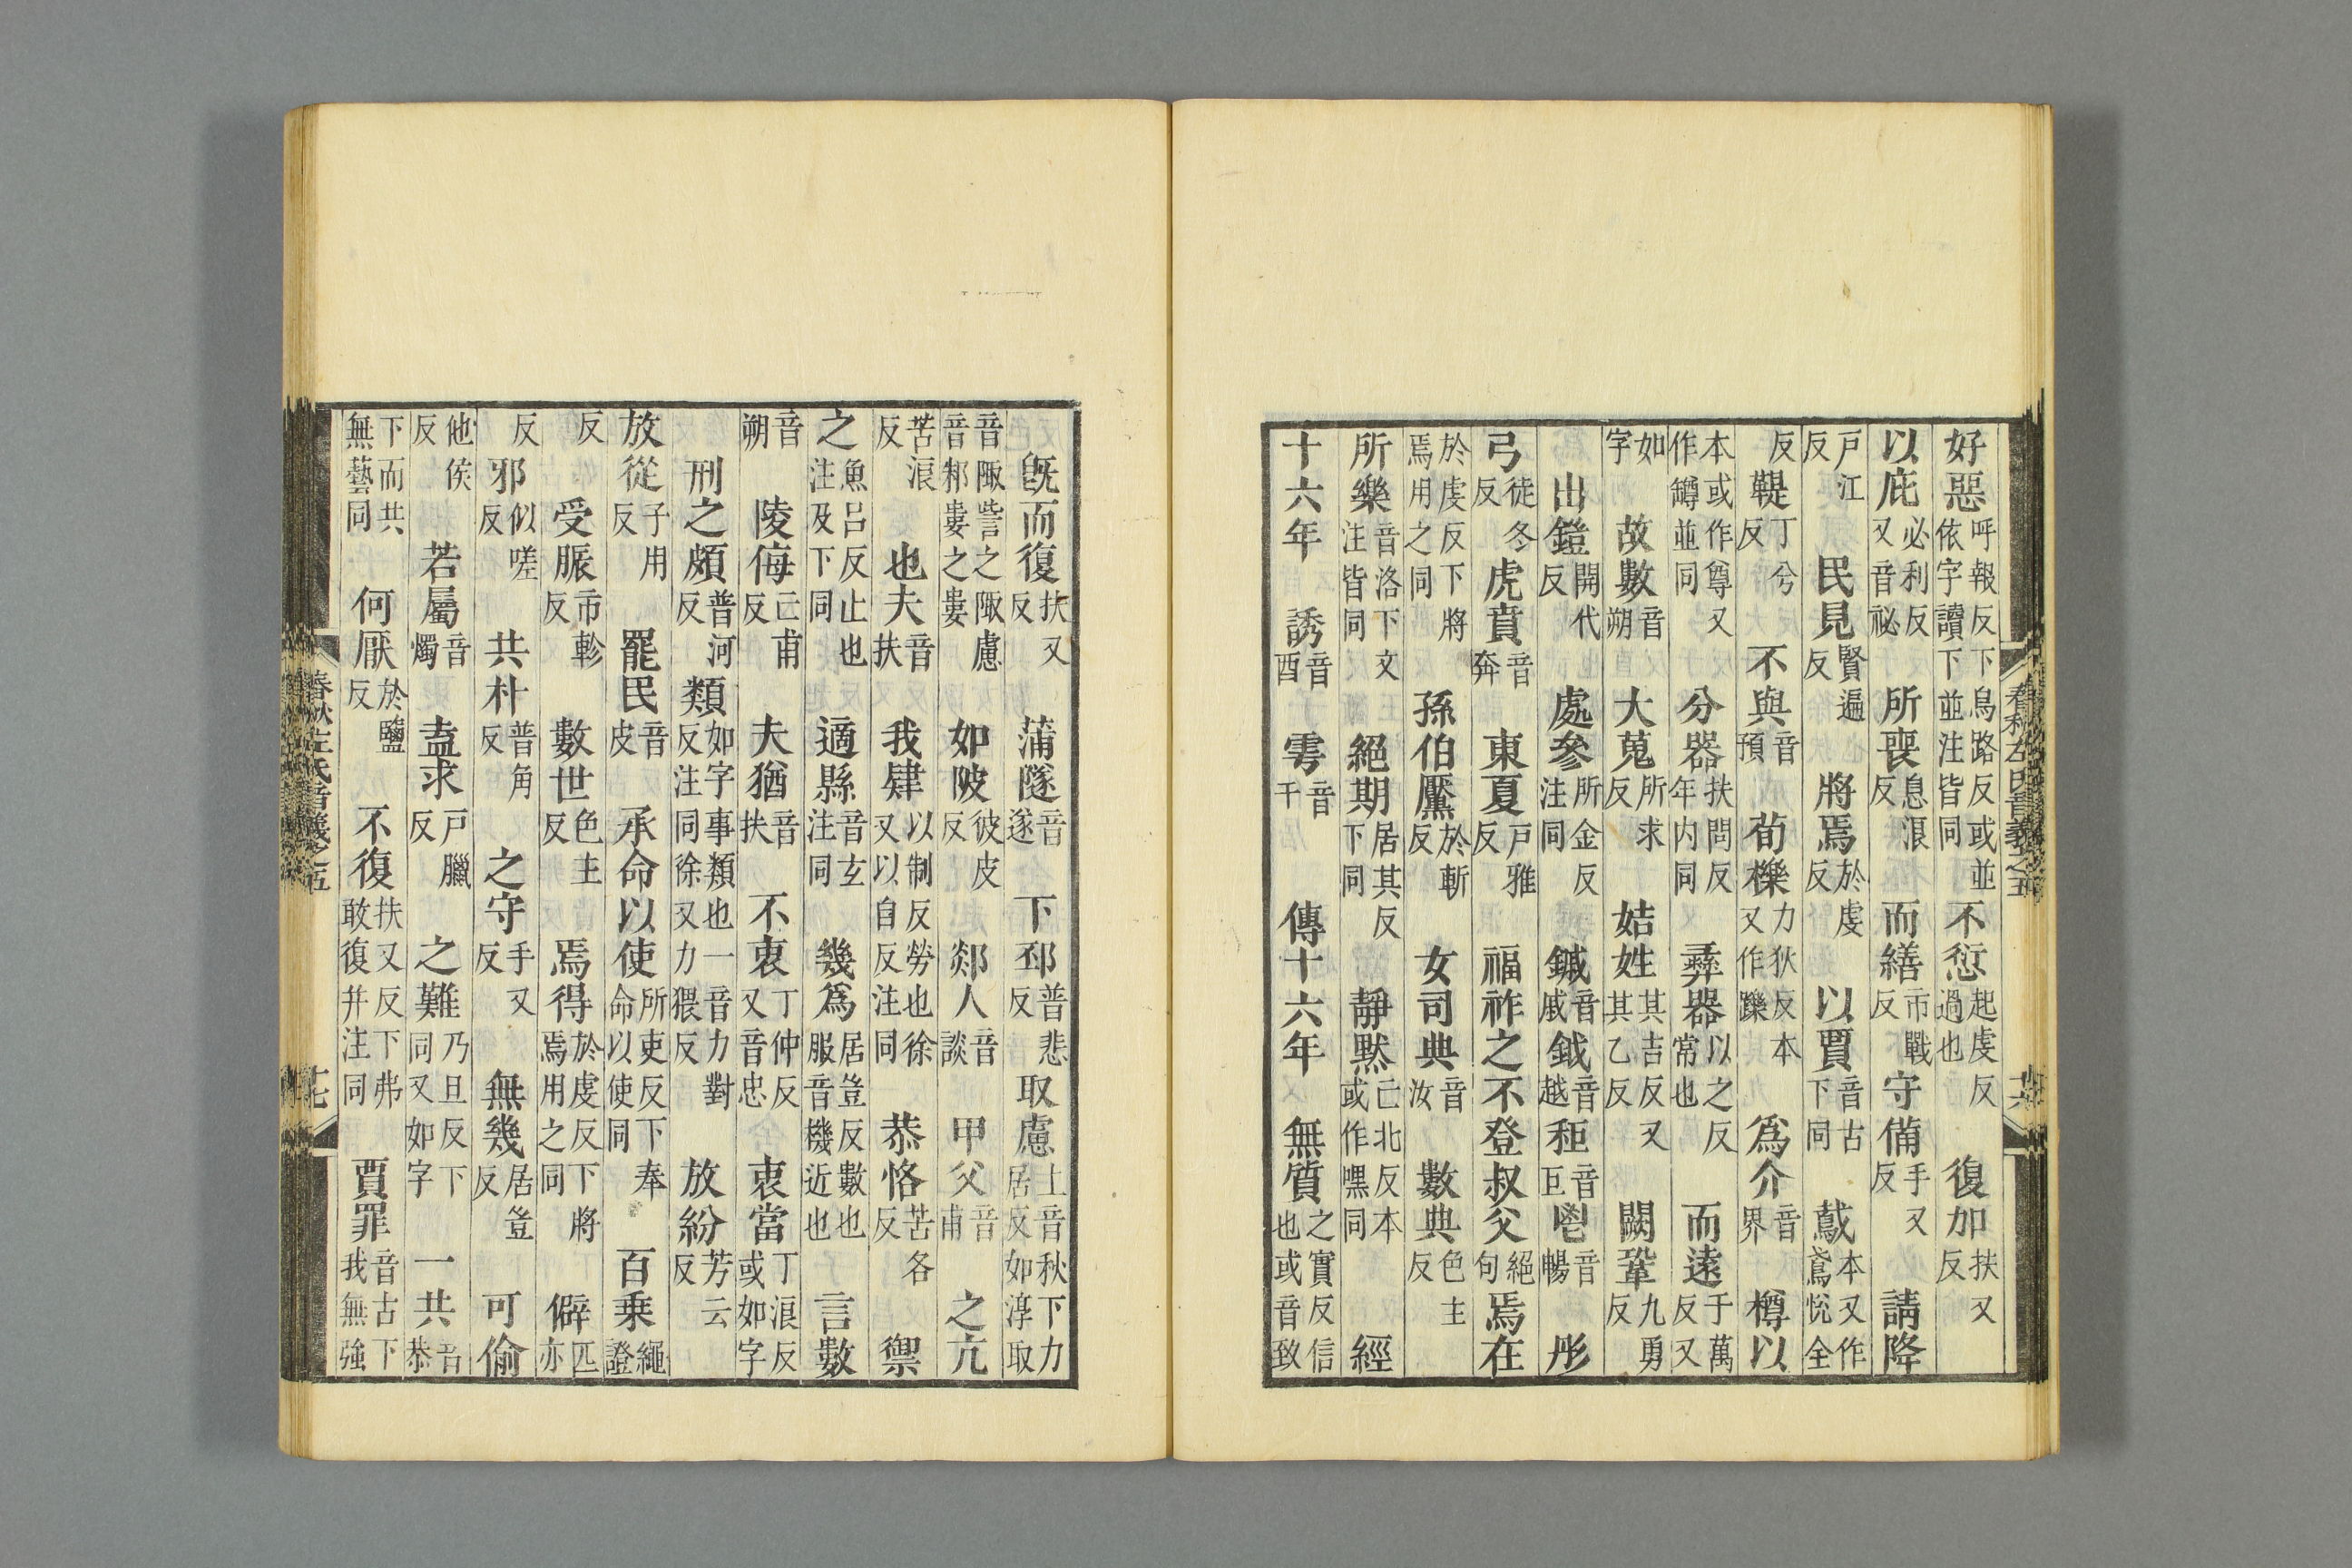 好惡呼報反下烏路反或並依字讀下並注皆同不愆起虔反過也復加扶又反
以庇必利反又音祕所喪息浪反而繕市戰反守備手又反請降
戸江反民見賢遍反將焉於虔反以賈音古下同鳶本又作鳶悅全
反鞮丁兮反不與音預荀櫟力狄反本又作躒爲介音界樽以
本或作尊又作罇並同分器扶問反年内同彞器以之反常也而遠于萬反又
如字故數音朔大蒐所求反姞姓其吉反又其乙反闕鞏九勇反
出鎧開代反處參所金反注同鏚音戚鉞音越秬音巨鬯音暢彤
弓徒冬反虎賁音奔東夏戸雅反福祚之不登叔父絕句焉在
於虔反下將焉用之同孫伯黶於斬反女司典音汝數典色主反
所樂音洛下文注皆同絕期居其反下同靜黙亡北反本或作嘿同經
十六年誘音酉雩音于傳十六年無質之實反信也或音致
春秋左氏音義之五
六
旣而復扶又反蒲隧音遂下邳普悲反取慮上音秋下力居反如淳取
音陬訾之陬慮音邾婁之婁如陂彼皮反郯人音談甲父音甫之亢
苦浪反也夫音扶我肄以制反勞也徐又以自反注同恭恪苦各反禦
之魚吕反止也注及下同適縣音玄注同幾爲居豈反數也服音機近也言數
音朔陵侮亡甫反夫猶音扶不衷丁仲反又音忠衷當丁浪反或如字
刑之頗普河反類如字事類也一音力對反注同徐又力猥反放紛芳云反
放從子用反罷民音皮承命以使所吏反下奉命以使同百乗繩證
反受脤市軫反數世色主反焉得於虔反下將焉用之同僻匹亦
反邪似嗟反共朴普角反之守手又反無幾居豈反可偷
他侯反若屬音燭盍求戸臘反之難乃旦反下同又如字一共音恭
下而共無藝同何厭於鹽反不復扶又反下弗敢復幷注同賈罪音古下我無強
春秋左氏音義之五
七